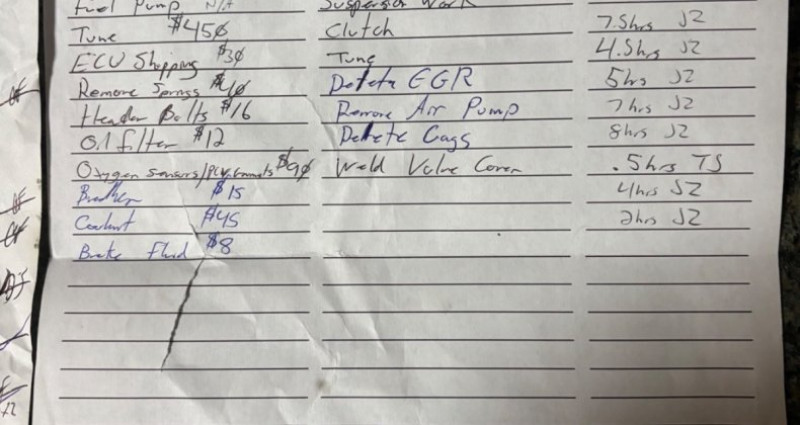 Fuel Pump N/A Suspension Work
Tune $450 Clutch 7.5hrs JZ
ECU Shipping $30 Tune 4.5hrs JZ
Remove Springs $40 Delete EGR 5hrs JZ
Header Bolts $16 Remove Air Pump 7hrs JZ
Oil filter $12 Delete Cags 8hrs JZ
Oxygen Sensors/PCV $90 Weld Valve Cover .5hrs TS
Breather $15 4hrs JZ
Coolant $45 2hrs JZ
Brake fluid $8